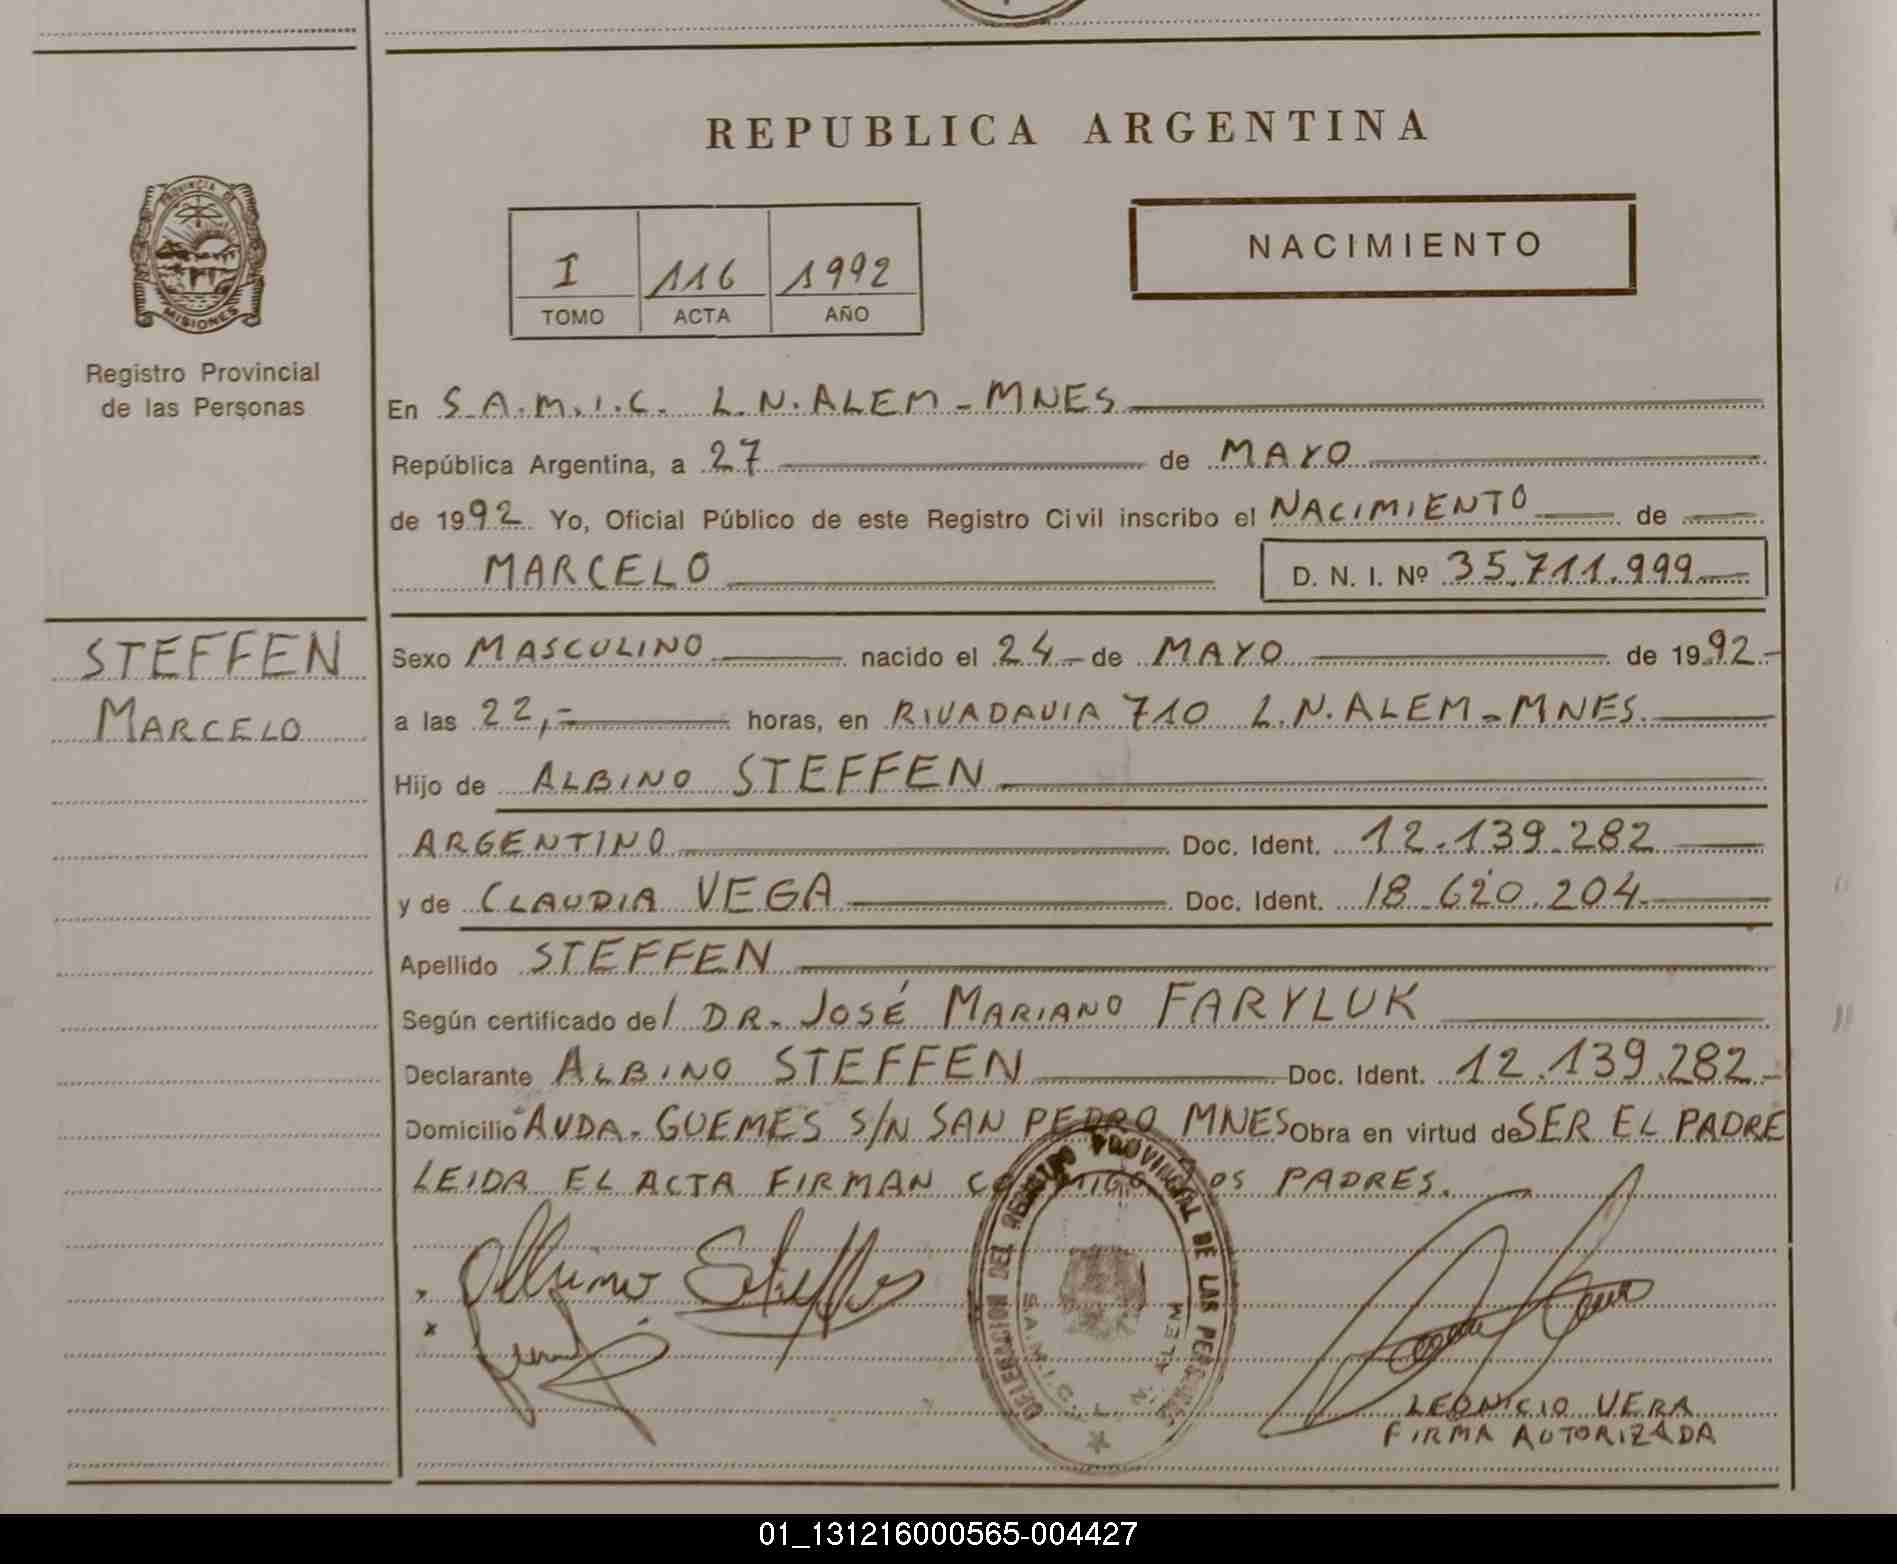 REPUBLICA ARGENTINA
PROVINCIA DE MISIONES
Registro Provincial
de las Personas
I 116 1992
TOMO ACTA AÑO
NACIMIENTO
En S.A.M.I.C. L.N.ALEM-MNES
República Argentina, a 27 de MAYO
de 1992 Yo, Oficial Público de este Registro Civil inscribo el NACIMIENTO de
MARCELO D. N. I. Nº 35.711.999
STEFFEN
MARCELO
Sexo MASCULINO nacido el 24 de MAYO de 1992
a las 22,- horas, en RIVADAVIA 710 L.N.ALEM-MNES.
Hijo de ALBINO STEFFEN
ARGENTINO Doc. Ident. 12.139.282
y de CLAUDIA VEGA Doc. Ident. 18.620.204
Apellido STEFFEN
Según certificado del DR. JOSÉ MARIANO FARYLUK
Declarante ALBINO STEFFEN Doc. Ident. 12.139.282
Domicilio AVDA. GUEMES S/N SAN PEDRO MNES Obra en virtud de SER EL PADRE
LEIDA EL ACTA FIRMAN CONMIGO LOS PADRES.
Albino Steffen
DELEGACION DEL REGISTRO PROVINCIAL DE LAS PERSONAS
S.A.M.I.C. L. N. ALEM
LEONICIO VERA
FIRMA AUTORIZADA
01_131216000565-004427